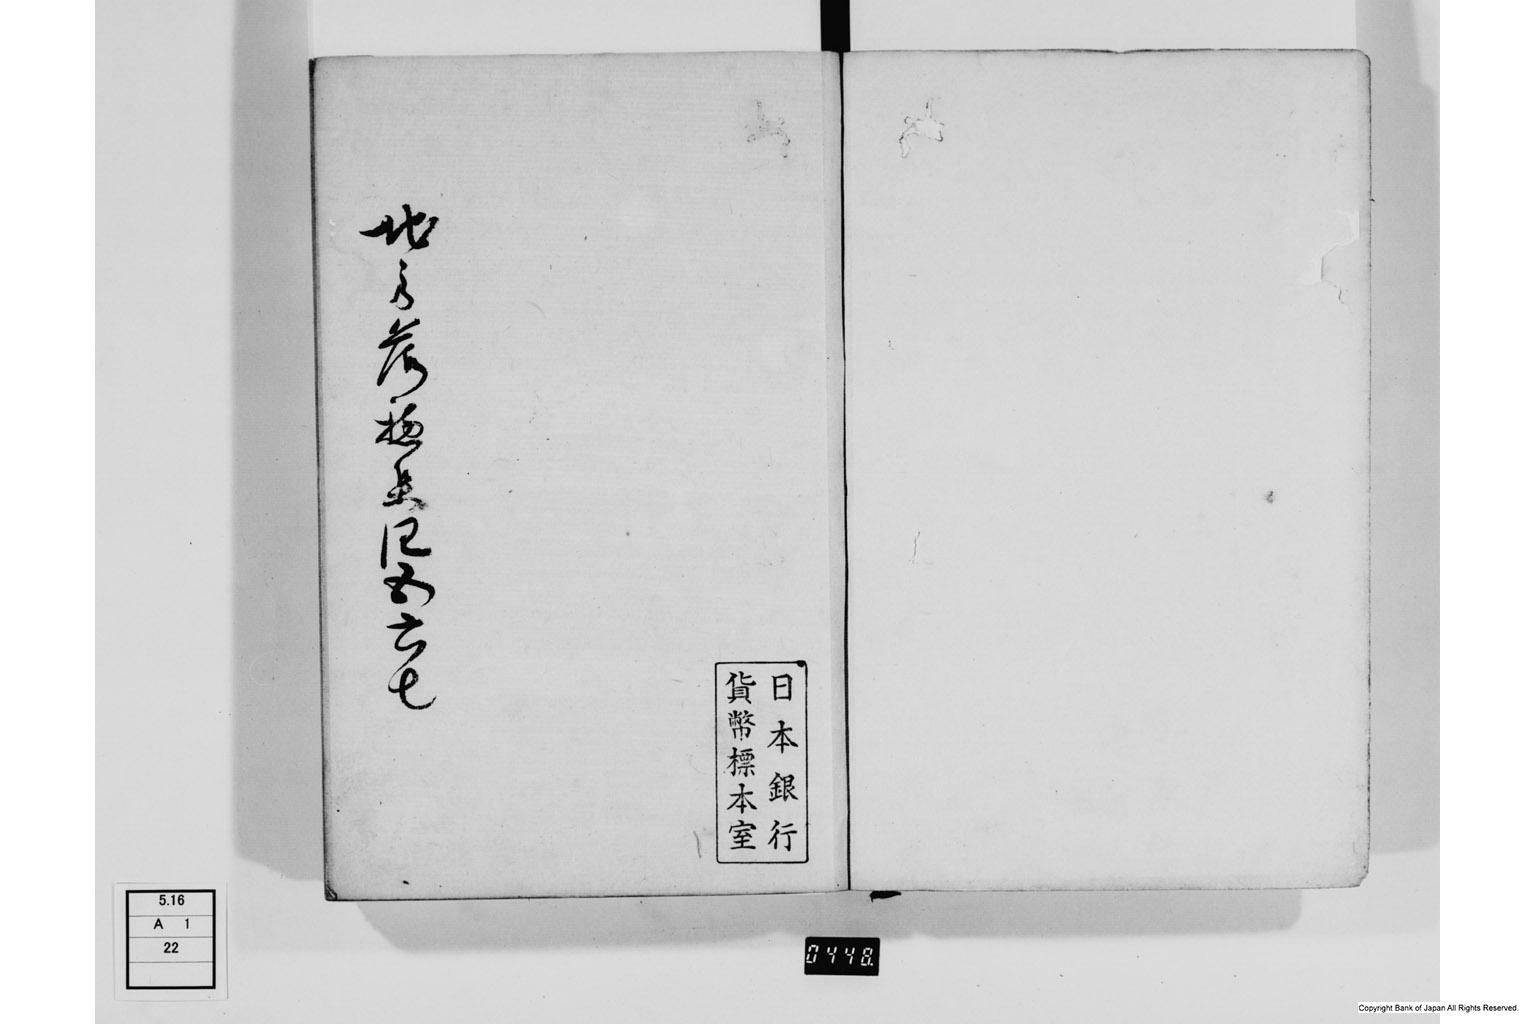 地方落穂集 巳 五六七
日本銀行
貨幣標本室
5.16
A 1
22
0448.
Copyright Bank of Japan All Rights Reserved.